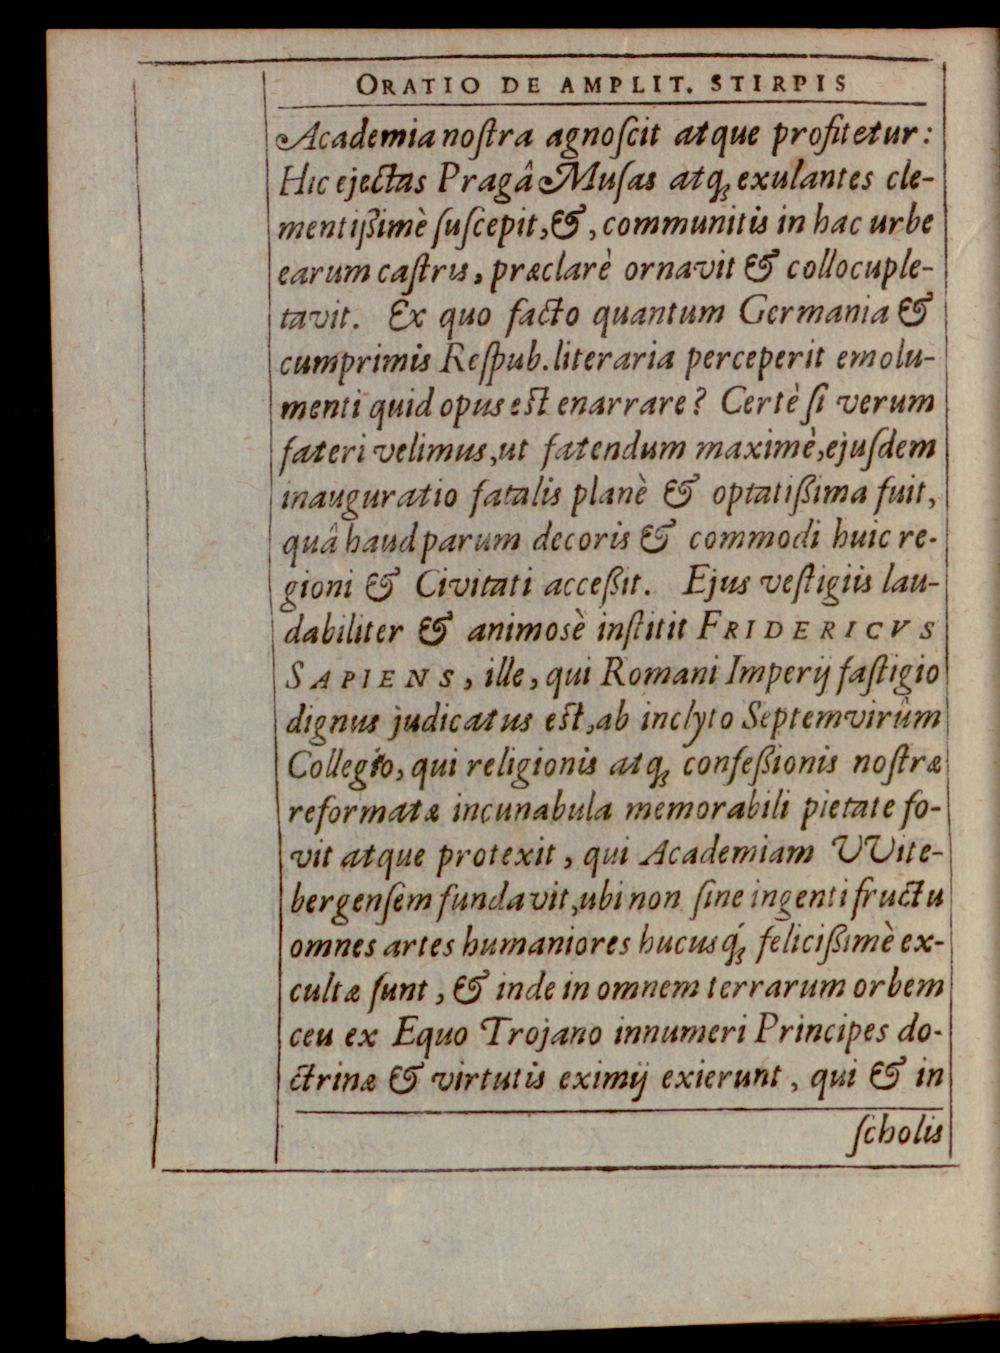 ORATIO DE AMPLIT. STIRPIS
Academia noſtra agnoſcit atque profitetur:
Hic ejectas Pragâ Muſas atq́ꝫ exulantes cle-
mentißimè ſuſcepit, &, communitis in hac urbe
earum caſtris, præclarè ornavit & collocuple-
tavit. Ex quo facto quantum Germania &
cumprimis Reſpub. literaria perceperit emolu-
menti quid opus est enarrare? Certè ſi verum
fateri velimus, ut fatendum maximè, ejuſdem
inauguratio fatalis planè & optatißima fuit,
quâ haud parum decoris & commodi huic re-
gioni & Civitati acceßit. Ejus veſtigiis lau-
dabiliter & animosè inſtitit FRIDERICVS
SAPIENS, ille, qui Romani Imperij faſtigio
dignus judicatus est, ab inclyto Septemvirûm
Collegio, qui religionis atqꝫ confeßionis noſtræ
reformatæ incunabula memorabili pietate fo-
vit atque protexit, qui Academiam VVite-
bergenſem fundavit, ubi non ſine ingenti fructu
omnes artes humaniores hucusq́ꝫ felicißimè ex-
cultæ ſunt, & inde in omnem terrarum orbem
ceu ex Equo Trojano innumeri Principes do-
ctrinæ & virtutis eximij exierunt, qui & in
ſcholis